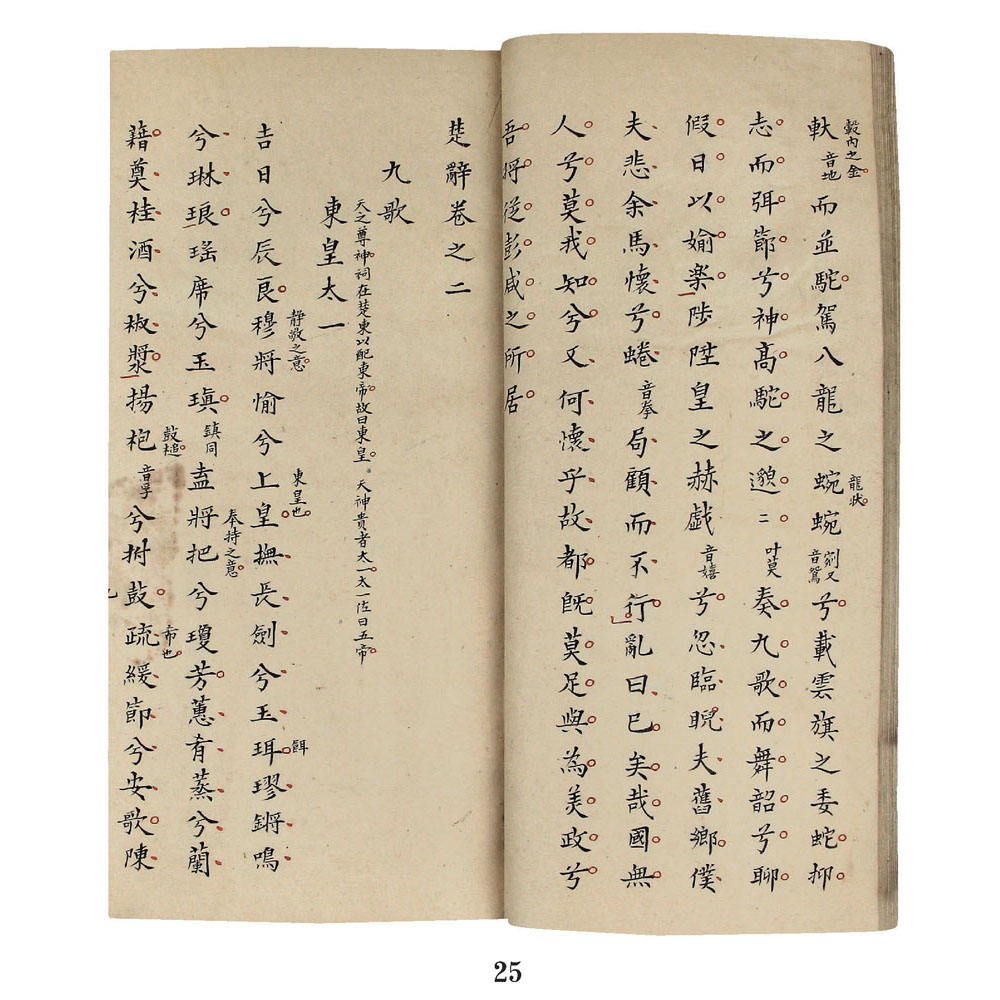 轂內之金
軑音地而並駝駕八龍之蜿蜿剜又音鴛兮載雲旗之委蛇抑
龍狀
志而弭節兮神高駝之邈二叶莫奏九歌而舞韶兮聊
假日以媮楽陟陞皇之赫戯音嬉兮忽臨睨夫舊鄉僕
夫悲余馬懷兮蜷音拳局顧而不行亂曰已矣哉國無
人兮莫我知兮又何懷乎故都既莫足與為美政兮
吾将従彭咸之所居
楚辭卷之二
九歌
天之尊神祠在楚東以配東帝故曰東皇 天神貴者太一太一佐曰五帝
東皇太一
静敬之意
東皇也
吉日兮辰良穆將愉兮上皇撫長劍兮玉珥璆鏘鳴
餌
奉持之意
兮琳琅瑶席兮玉瑱鎮同盍將把兮瓊芳蕙肴蒸兮蘭
鼓槌
布也
藉奠桂酒兮椒漿揚枹音孚兮拊鼓疏緩節兮安歌陳
25